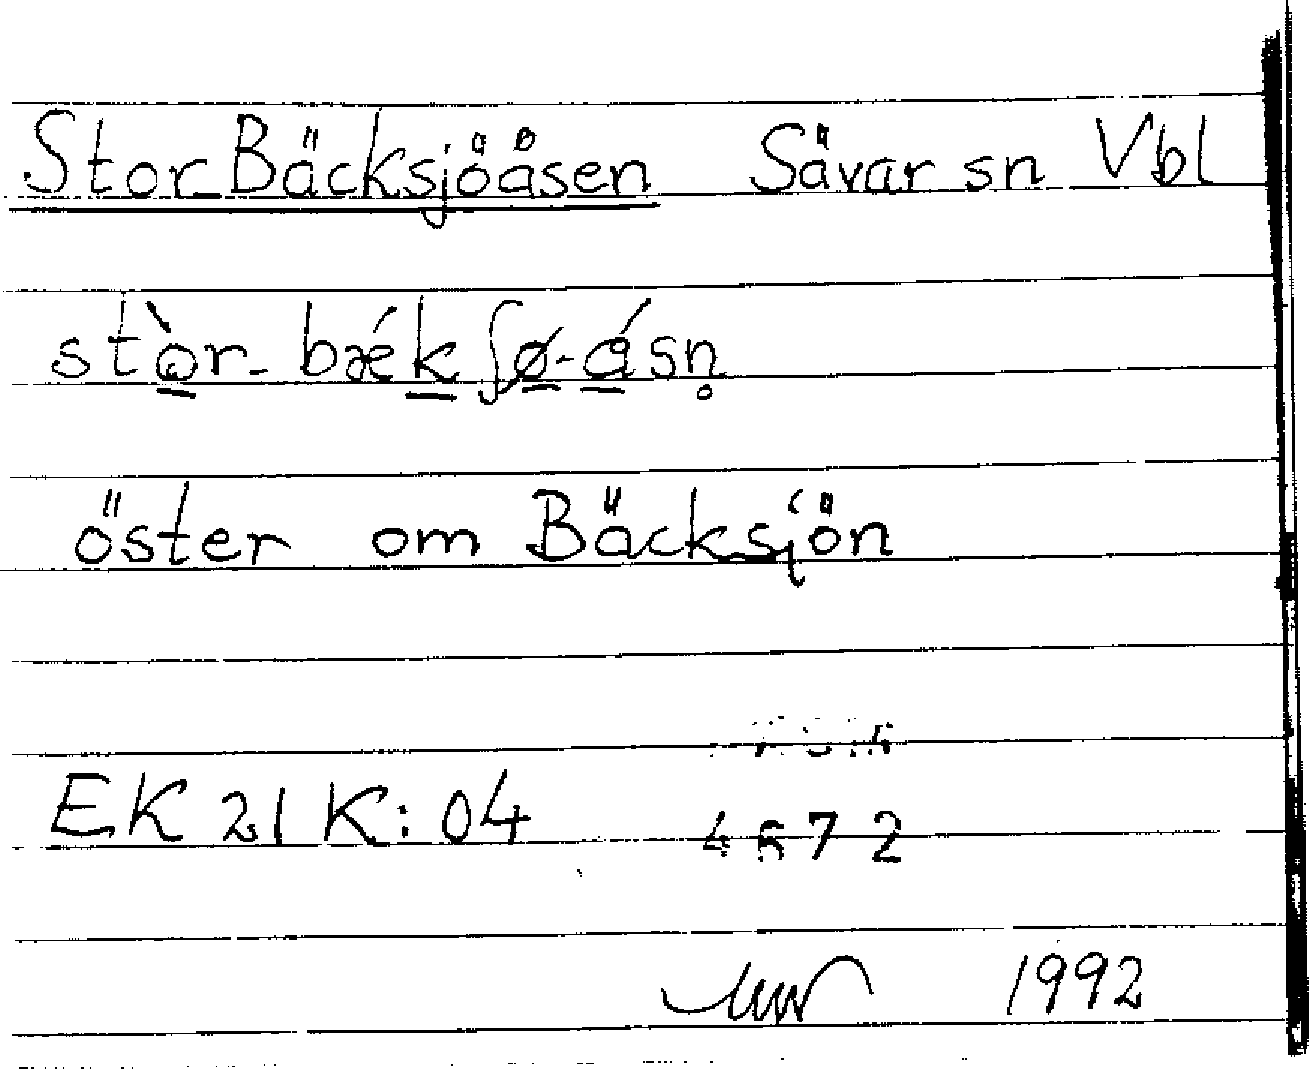 Stor Bäcksjöåsen Sävar sn Vbl
stòr- bǽk ʃø-ásn̥
öster om Bäcksjön
EK 21 K: 04 4672
1992